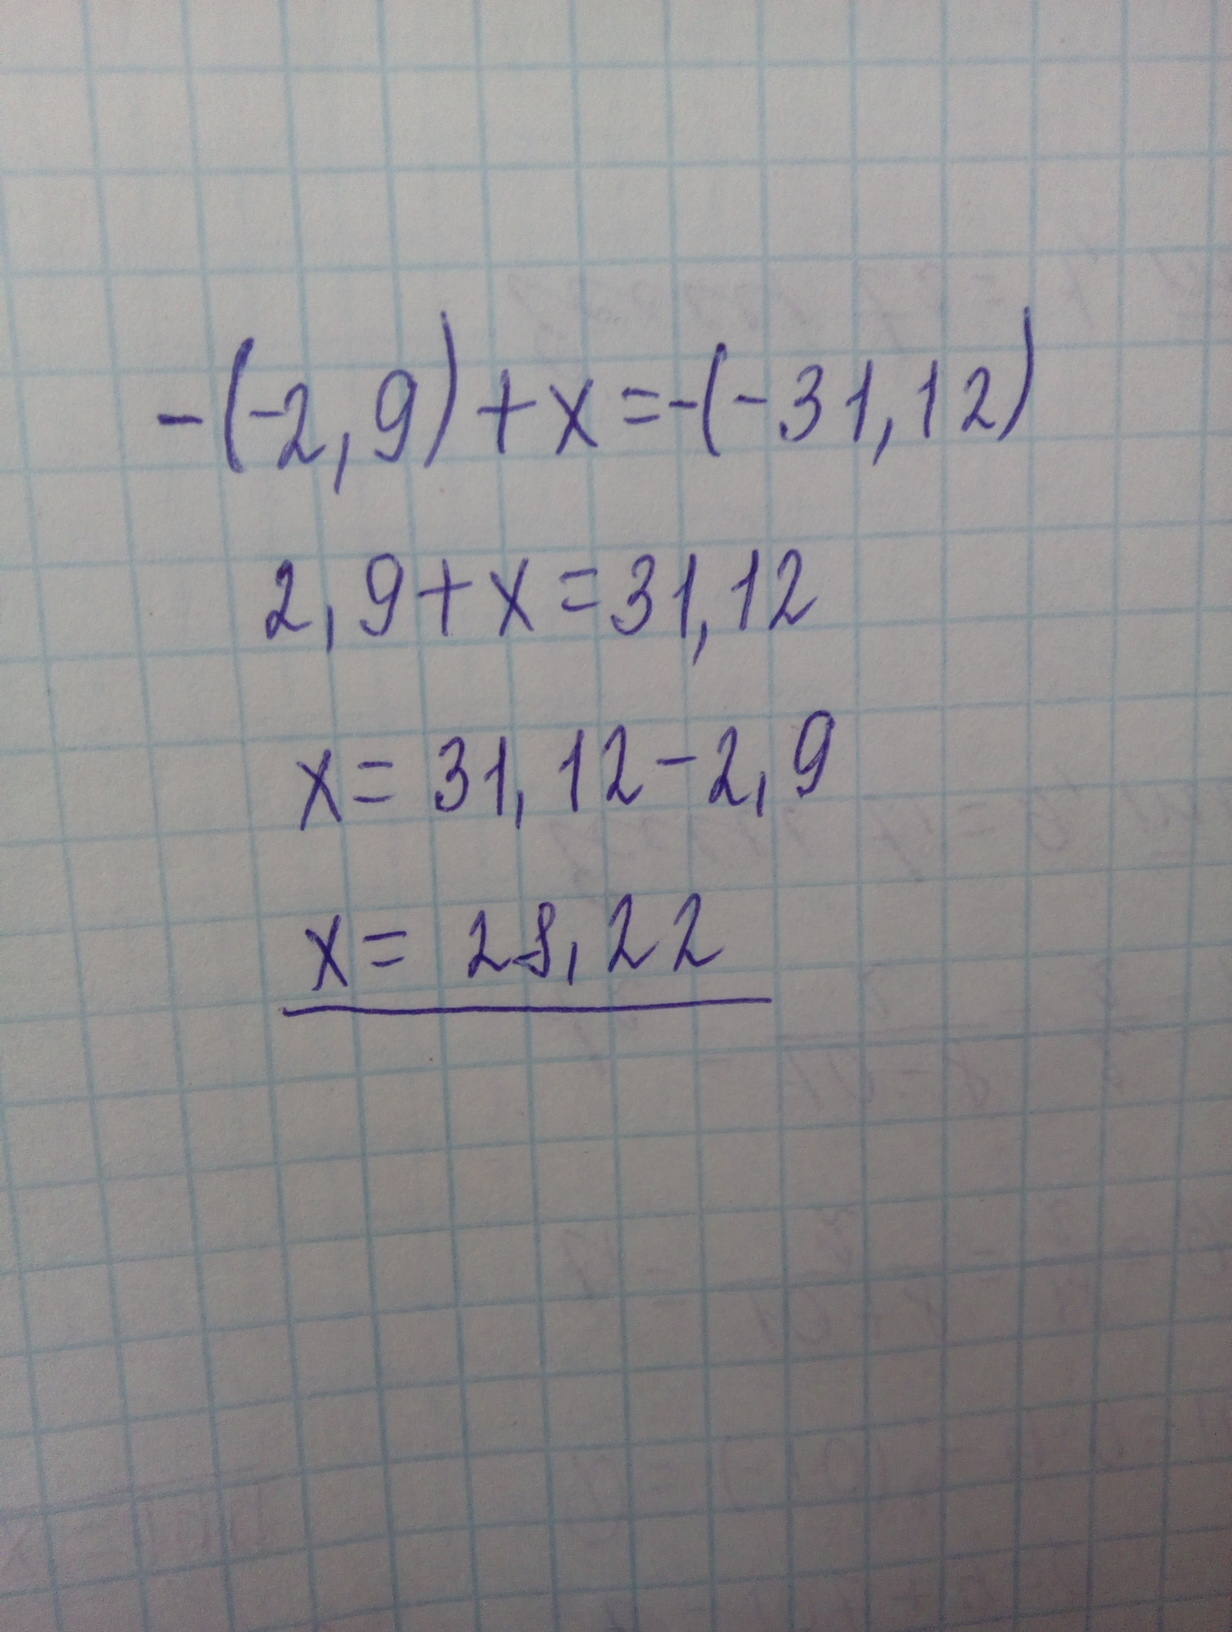 -(-2,9)+x=-(-31,12)
2,9+x=31,12
x=31,12-2,9
x=28,22